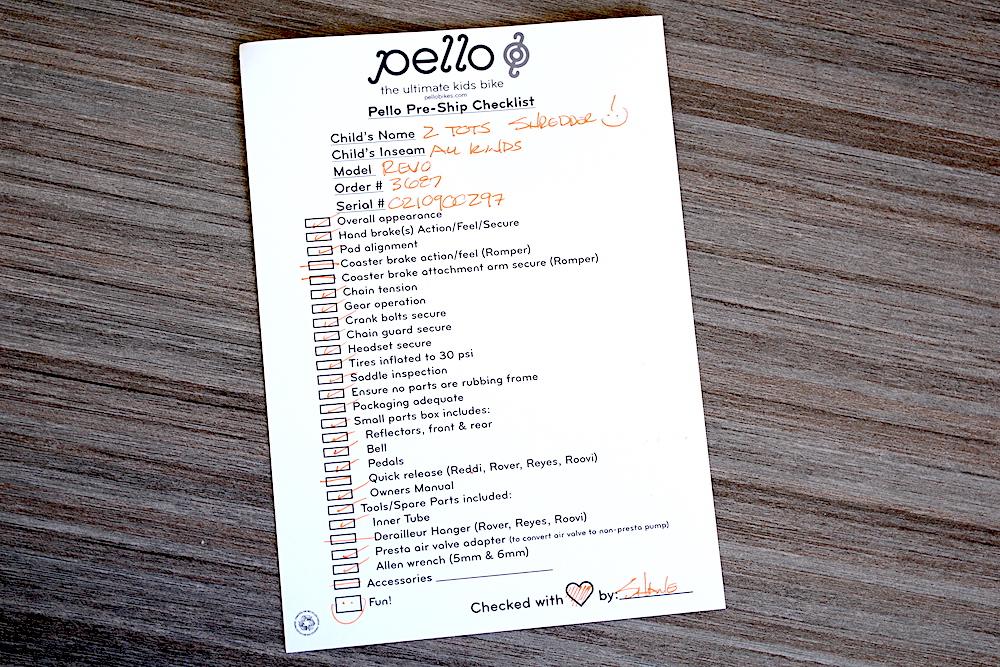 pello
the ultimate kids bike
pellobikes.com
Pello Pre-Ship Checklist
Child's Name 2 TOTS SHREDDER!
Child's Inseam ALL KINDS
Model REVO
Order # 3687
Serial # 0210900297
Overall appearance
Hand brake(s) Action/Feel/Secure
Pad alignment
Coaster brake action/feel (Romper)
Coaster brake attachment arm secure (Romper)
Chain tension
Gear operation
Crank bolts secure
Chain guard secure
Headset secure
Tires inflated to 30 psi
Saddle inspection
Ensure no parts are rubbing frame
Packaging adequate
Small parts box includes:
Reflectors, front & rear
Bell
Pedals
Quick release (Reddi, Rover, Reyes, Roovi)
Owners Manual
Tools/Spare Parts included:
Inner Tube
Derailleur Hanger (Rover, Reyes, Roovi)
Presta air valve adapter (to convert air valve to non-presta pump)
Allen wrench (5mm & 6mm)
Accessories
Fun!
Checked with by: SHANE